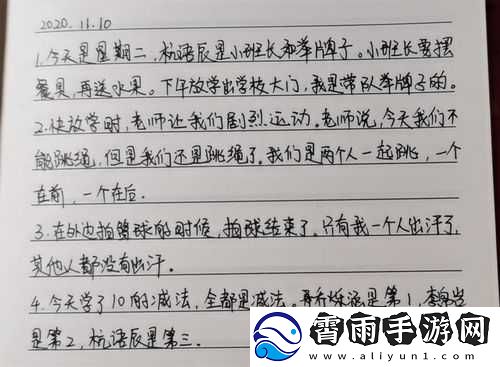 2020.11.10
1.今天是星期二，杭语辰是小班长和举牌子。小班长要摆
餐具，再送水果。下午放学出学校大门，我是带队举牌子的。
2.快放学时，老师让我们剧烈运动。老师说，今天我们不
能跳绳，但是我们还是跳绳了。我们是两个人一起跳，一个
在前，一个在后。
3.在外边拍篮球的时候，拍球结束了。只有我一个人出汗了，
其他人都没有出汗。
4.今天学了10的减法，全都是减法。是第1，
是第2，杭语辰是第三.
霄雨手游网
www.aliyun1.com